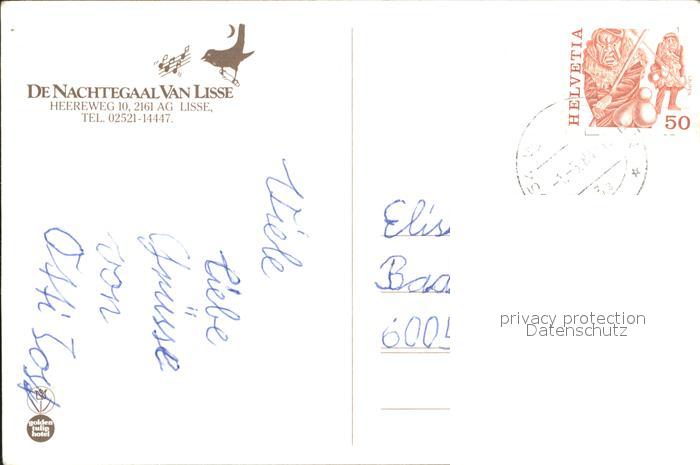 DE NACHTEGAAL VAN LISSE
HEEREWEG 10, 2161 AG LISSE,
TEL. 02521-14447.
HELVETIA
50
Viele
liebe
Grüsse
von
Otti
Elis
Baa
6005
privacy protection
Datenschutz
golden
tulip
hotel